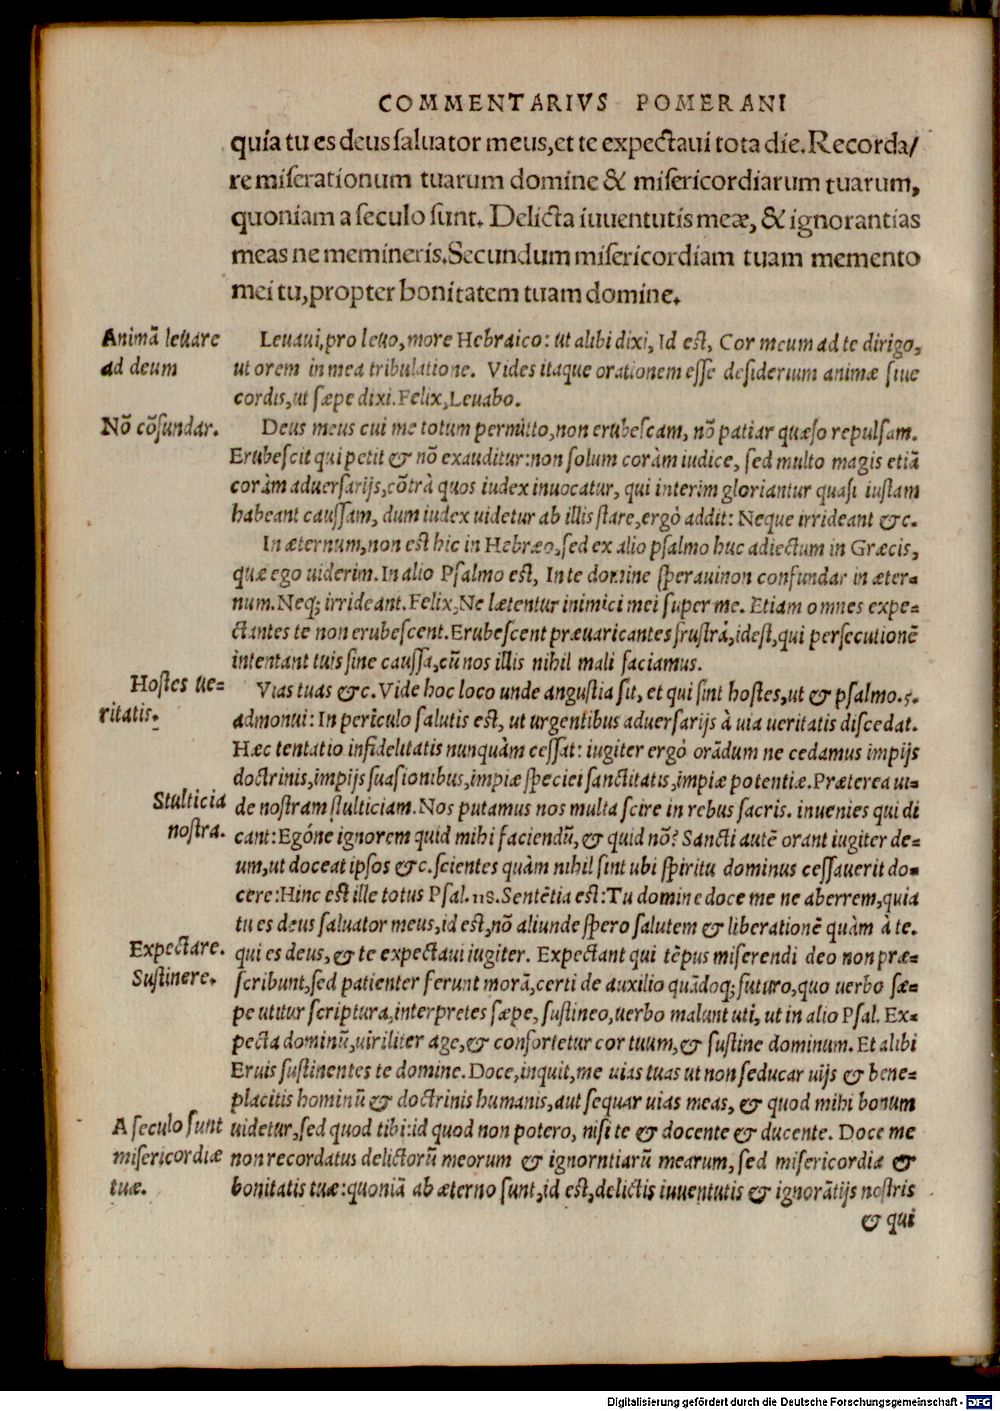 COMMENTARIVS POMERANI
quia tu es deus saluator meus, et te expectaui tota die. Recorda/
re miserationum tuarum domine & misericordiarum tuarum,
quoniam a seculo sunt. Delicta iuuentutis meæ, & ignorantias
meas ne memineris. Secundum misericordiam tuam memento
mei tu, propter bonitatem tuam domine.
Animā leuare
ad deum
Leuaui, pro leuo, more Hebraico: ut alibi dixi, Id est, Cor meum ad te dirigo,
ut orem in mea tribulatione. Vides itaque orationem esse desiderium animæ siue
cordis, ut sæpe dixi. Felix, Leuabo.
Nō cōfundar.
Deus meus cui me totum permitto, non erubescam, nō patiar quæso repulsam.
Erubescit qui petit & nō exauditur: non solum coràm iudice, sed multo magis etiā
coràm aduersarijs, cōtrà quos iudex inuocatur, qui interim gloriantur quasi iustam
habeant caussam, dum iudex uidetur ab illis stare, ergò addit: Neque irrideant &c.
In æternum, non est hic in Hebræo, sed ex alio psalmo huc adiectum in Græcis,
quæ ego uiderim. In alio Psalmo est, In te domine speraui non confundar in æter=
num. Neq; irrideant. Felix, Ne lætentur inimici mei super me. Etiam omnes expe=
ctantes te non erubescent. Erubescent præuaricantes frustrà, idest, qui persecutionē
intentant tuis sine caussa, cū nos illis nihil mali faciamus.
Hostes ue=
ritatis.
Vias tuas &c. Vide hoc loco unde angustia sit, et qui sint hostes, ut & psalmo. 5.
admonui: In periculo salutis est, ut urgentibus aduersarijs à uia ueritatis discedat.
Hæc tentatio infidelitatis nunquàm cessat: iugiter ergò orādum ne cedamus impijs
doctrinis, impijs suasionibus, impiæ speciei sanctitatis, impiæ potentiæ. Præterea ui=
Stulticia
nostra.
de nostram stulticiam. Nos putamus nos multa scire in rebus sacris. inuenies qui di
cant: Egóne ignorem quid mihi faciendū, & quid nō? Sancti autē orant iugiter de=
um, ut doceat ipsos &c. scientes quàm nihil sint ubi spiritu dominus cessauerit do=
cere: Hinc est ille totus Psal. 118. Sentētia est: Tu domine doce me ne aberrem, quia
tu es deus saluator meus, id est, nō aliunde spero salutem & liberationē quàm à te.
Expectare.
Sustinere.
qui es deus, & te expectaui iugiter. Expectant qui tēpus miserendi deo non præ=
scribunt, sed patienter ferunt morā, certi de auxilio quādoq; futuro, quo uerbo sæ=
pe utitur scriptura, interpretes sæpe, sustineo, uerbo malunt uti, ut in alio Psal. Ex=
pecta dominū, uiriliter age, & confortetur cor tuum, & sustine dominum. Et alibi
Eruis sustinentes te domine. Doce, inquit, me uias tuas ut non seducar uijs & bene=
placitis hominū & doctrinis humanis, aut sequar uias meas, & quod mihi bonum
A seculo sunt
misericordiæ
tuæ.
uidetur, sed quod tibi: id quod non potero, nisi te & docente & ducente. Doce me
non recordatus delictorū meorum & ignorntiarū mearum, sed misericordiæ &
bonitatis tuæ: quoniā ab æterno sunt, id est, delictis iuuentutis & ignorātijs nostris
& qui
Digitalisierung gefördert durch die Deutsche Forschungsgemeinschaft - DFG